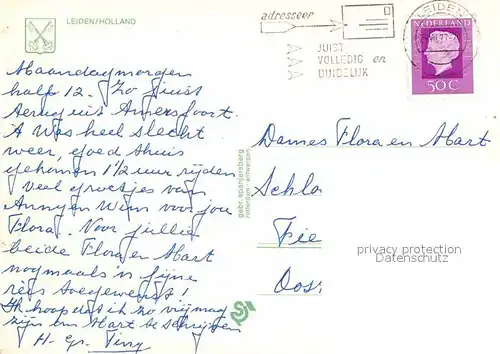 LEIDEN/HOLLAND
adresseer
JUIST
VOLLEDIG en
DUIDELIJK
LEIDEN
NEDERLAND
50 C
Maandagmorgen
half 12. Zo juist
terug uit Amersfoort.
Was heel slecht
weer, goed thuis
gekomen 1½ uur rijden
Veel groetjes van
Anny en Wim voor jou
Flora. Voor jullie
beide Flora en Mart
nogmaals 'n fijne
reis toegewenst!
Ik hoop dat ik zo vrij mag
zijn om Mart te schrijven
H. Gr. Tiny
gebr. spanjersberg
rotterdam-antwerpen
Dames Flora en Mart
Schlo
Fie
Oos
privacy protection
Datenschutz